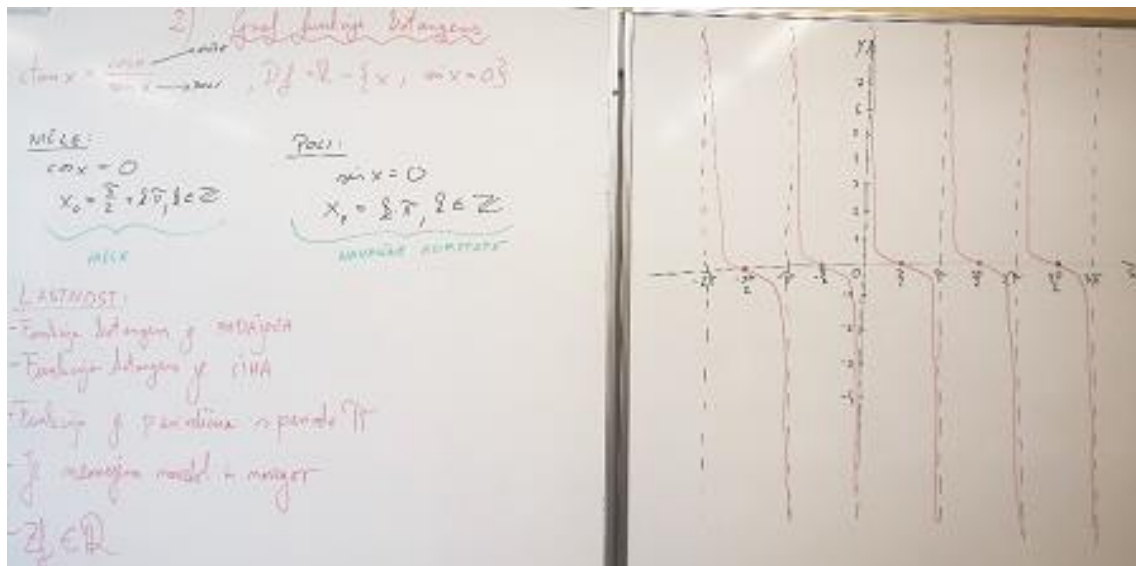 2) Graf funkcije kotangens
ctan x = cos x / sin x → ničle → poli , Df = R - {x, sin x = 0}
NIČLE:
cos x = 0
x₀ = π/2 + kπ, k ∈ ℤ
NIČLE
POLI:
sin x = 0
xₚ = k·π, k ∈ ℤ
NAVPIČNE ASIMPTOTE
LASTNOSTI:
- Funkcija kotangens je PADAJOČA
- Funkcija kotangens je LIHA
- Funkcija je periodična s periodo π
- Je neomejena navzdol in navzgor
- Zf ∈ ℝ
y
0